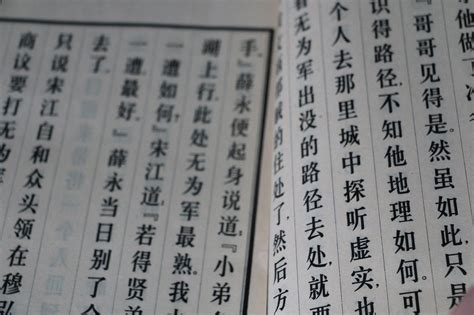 他做下
『哥哥见得是。然虽如此只是
识得路径,不知他地理如何。可
个人去那里城中探听虚实,也
看无为军出没的路径去处,就要
的住处了,然后方
手。』薛永便起身说道:『小弟
湖上行,此处无为军最熟。我
一遭如何?』宋江道:『若得贤
一遭最好。』薛永当日别了
去了。
只说宋江自和众头领在穆弘
商议要打无为